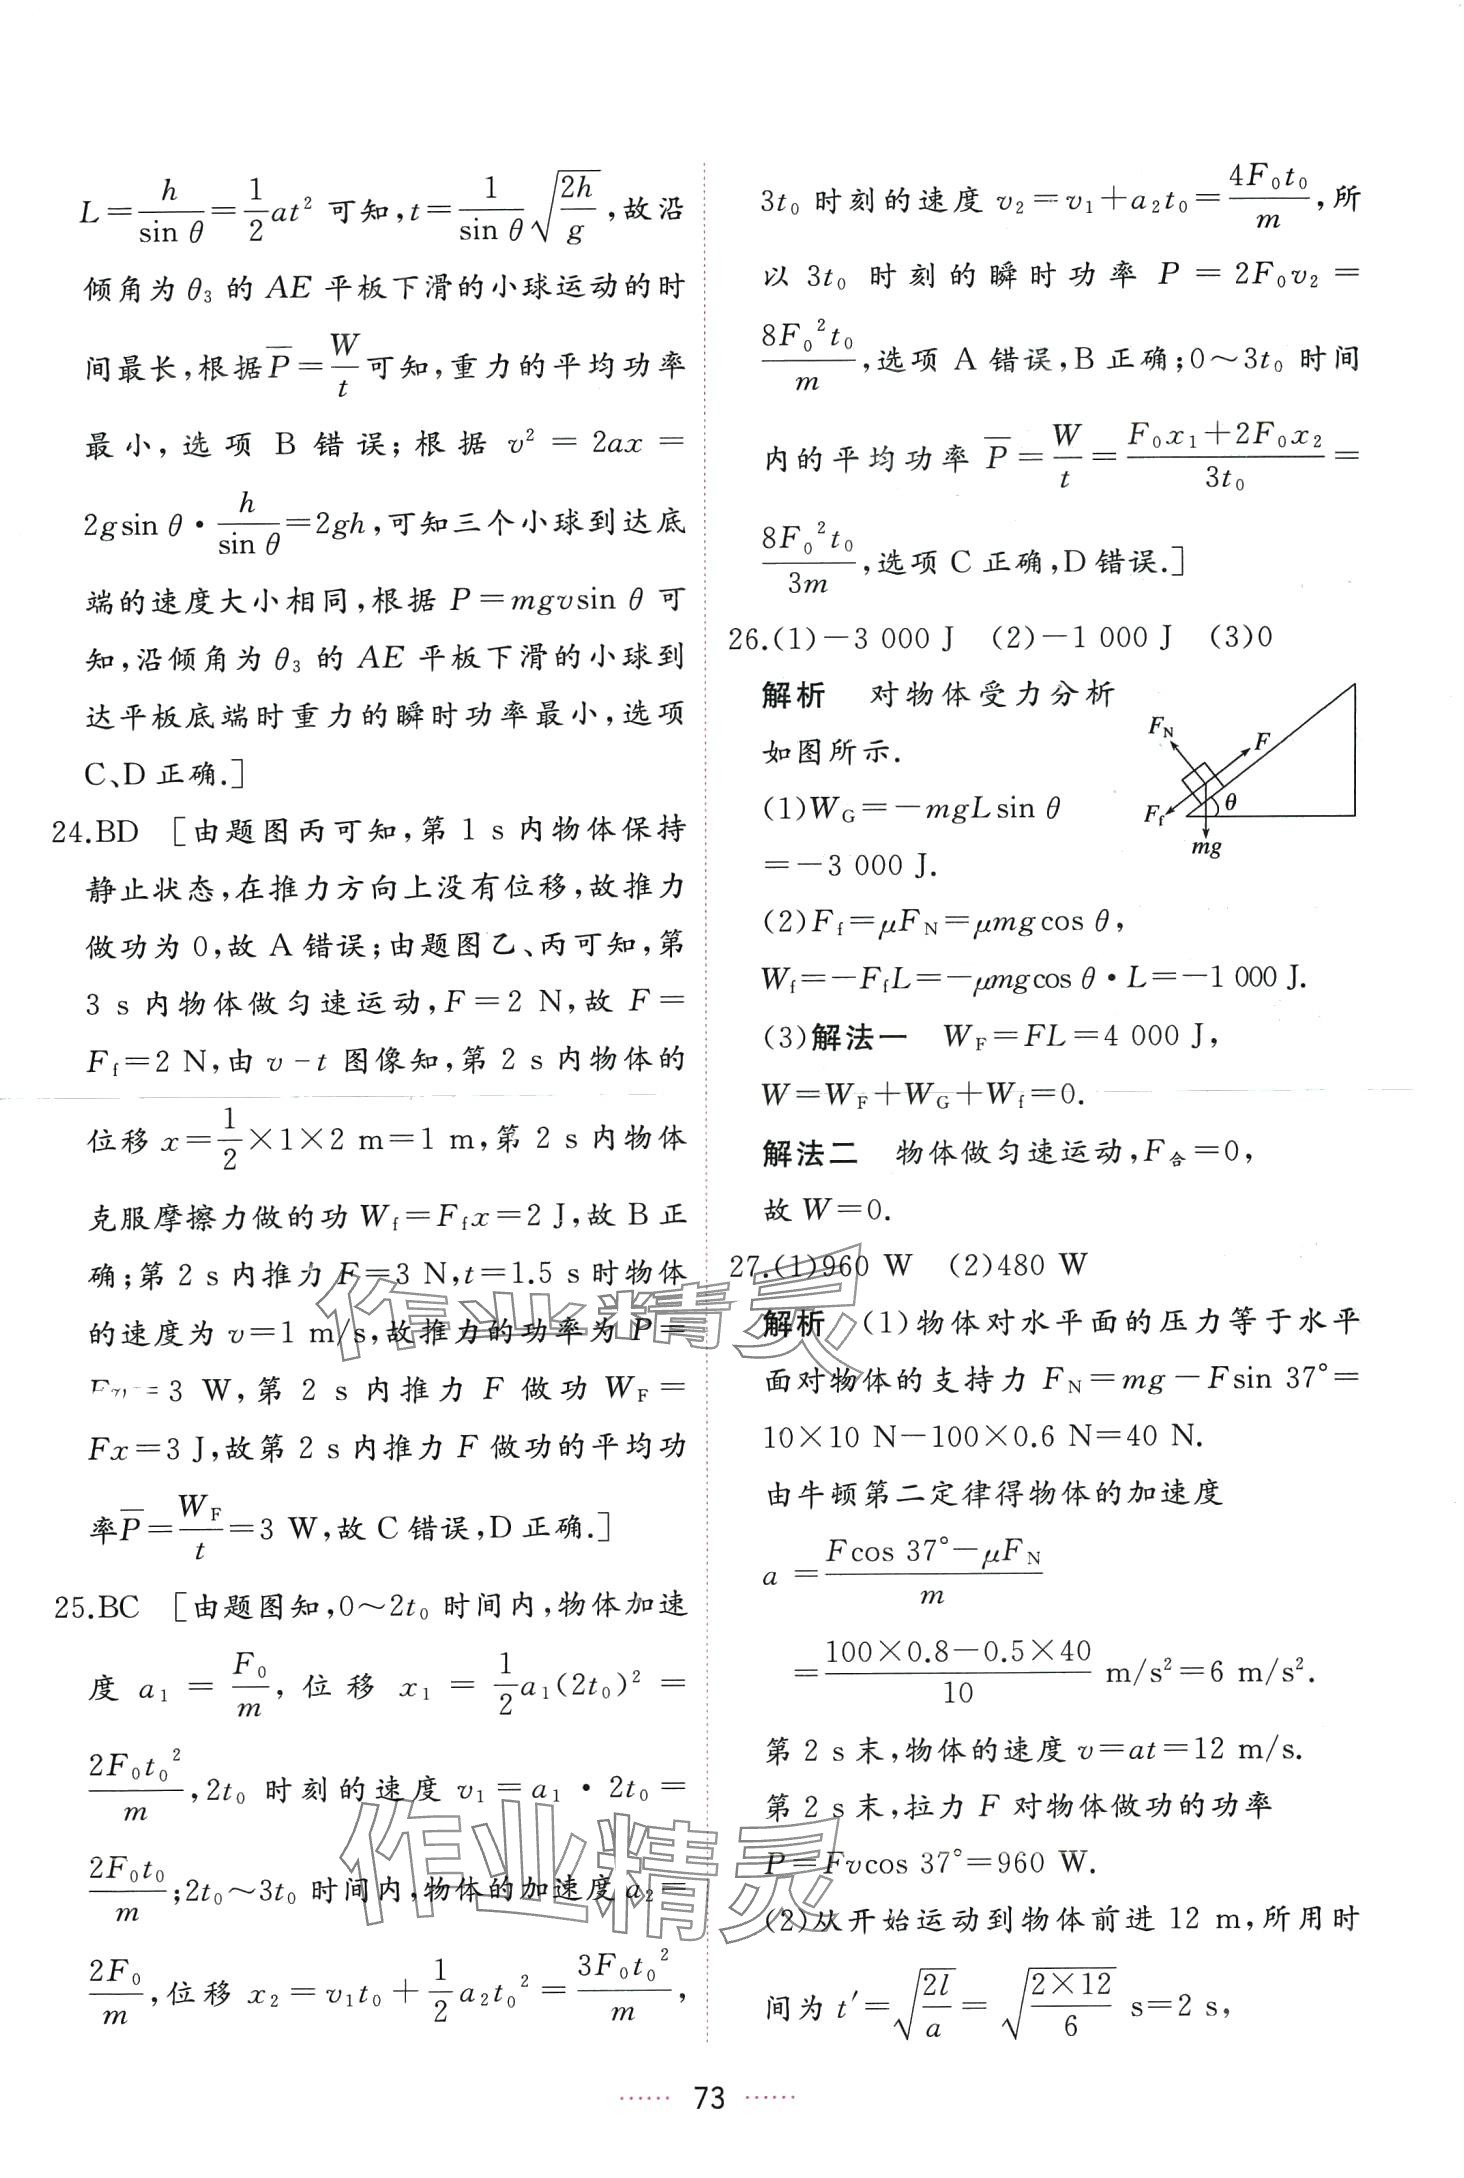 L=h/sin θ=1/2at²可知,t=1/sin θ√(2h/g),故沿
倾角为θ₃的AE平板下滑的小球运动的时
间最长,根据P̅=W/t可知,重力的平均功率
最小,选项B错误;根据v²=2ax=
2gsin θ·h/sin θ=2gh,可知三个小球到达底
端的速度大小相同,根据P=mgvsin θ可
知,沿倾角为θ₃的AE平板下滑的小球到
达平板底端时重力的瞬时功率最小,选项
C、D正确.]
24.BD [由题图丙可知,第1 s内物体保持
静止状态,在推力方向上没有位移,故推力
做功为0,故A错误;由题图乙、丙可知,第
3 s内物体做匀速运动,F=2 N,故F=
Ff=2 N,由v-t图像知,第2 s内物体的
位移x=1/2×1×2 m=1 m,第2 s内物体
克服摩擦力做的功Wf=Ffx=2 J,故B正
确;第2 s内推力F=3 N,t=1.5 s时物体
的速度为v=1 m/s,故推力的功率为P=
=3 W,第2 s内推力F做功WF=
Fx=3 J,故第2 s内推力F做功的平均功
率P̅=WF/t=3 W,故C错误,D正确.]
25.BC [由题图知,0～2t₀时间内,物体加速
度a₁=F₀/m,位移x₁=1/2a₁(2t₀)²=
2F₀t₀²/m,2t₀时刻的速度v₁=a₁·2t₀=
2F₀t₀/m;2t₀～3t₀时间内,物体的加速度a₂=
2F₀/m,位移x₂=v₁t₀+1/2a₂t₀²=3F₀t₀²/m,
3t₀时刻的速度v₂=v₁+a₂t₀=4F₀t₀/m,所
以3t₀时刻的瞬时功率P=2F₀v₂=
8F₀²t₀/m,选项A错误,B正确;0～3t₀时间
内的平均功率P̅=W/t=(F₀x₁+2F₀x₂)/3t₀=
8F₀²t₀/3m,选项C正确,D错误.]
26.(1)-3 000 J (2)-1 000 J (3)0
解析 对物体受力分析
如图所示.
FN
F
Ff
θ
mg
(1)WG=-mgLsin θ
=-3 000 J.
(2)Ff=μFN=μmgcos θ,
Wf=-FfL=-μmgcos θ·L=-1 000 J.
(3)解法一 WF=FL=4 000 J,
W=WF+WG+Wf=0.
解法二 物体做匀速运动,F合=0,
故W=0.
27.(1)960 W (2)480 W
解析 (1)物体对水平面的压力等于水平
面对物体的支持力FN=mg-Fsin 37°=
10×10 N-100×0.6 N=40 N.
由牛顿第二定律得物体的加速度
a=(Fcos 37°-μFN)/m
=(100×0.8-0.5×40)/10 m/s²=6 m/s².
第2 s末,物体的速度v=at=12 m/s.
第2 s末,拉力F对物体做功的功率
P=Fvcos 37°=960 W.
(2)从开始运动到物体前进12 m,所用时
间为t′=√(2l/a)=√(2×12/6) s=2 s,
作业精灵
作业精灵
73